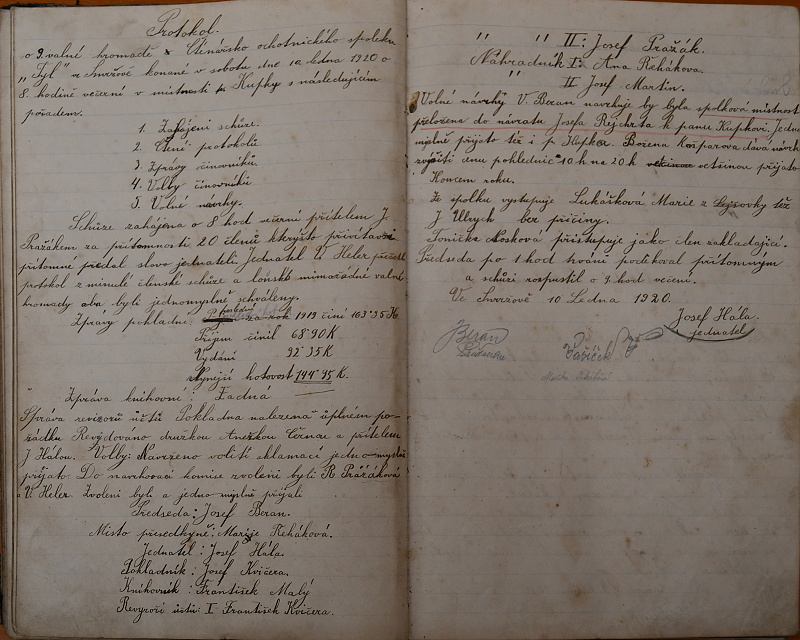 Protokol.
o 3. valné hromadě Čtenársko ochotnického spolku
„Tyl" v Smržově konané v sobotu dne 10 ledna 1920 o
8. hodině večerní v místnosti p. Kupky s následujícím
pořadem.
1. Zahájení schůze.
2. Čtení protokolů
3. Zprávy činovníků.
4. Volby činovníků
5. Volné navrhy.
Schůze zahájena o 8 hod večerní přítelem J.
Pražákem za přítomnosti 20 členů kterýsto přivítav
přítomné předal slovo jednateli V. Heler
protokol z minulé členské schůze a loňské mimořádné valné
hromady oba byli jednomyslně schváleny.
Zprávy pokladní: za rok 1919 činí 163·35 K.
Příjem činil 68·90 K
Vydání 92·35 K
Nynější hotovost K.
Zpráva knihovní: Žádná
Správa revizorů účtů Pokladna nalezena v úplném po-
řádku Revydováno družkou Anežkou Černou a přítelem
J Hálou. Volby: Navrženo voliti sklamací jedno myslně
přijato. Do navrhovací komise zvoleni byli R Pražáková
a V. Heler. Zvoleni byli a jedno myslně přijati
Předseda: Josef Beran.
Misto předsedkyně: Marije Řeháková.
Jednatel: Josef Hála.
Pokladník: Josef Kvičera.
Knihovník: František Malý
Revyzoři účtů: I František Kvičera.
" " II: Josef Pražák.
Náhradník I: Ana Řeháková.
" II Josef Martin.
Volné návrhy V. Beran navrhuje by byla spolková místnost
přeložena do návratu Josefa Rejchrta k panu Kupkovi. Jedno
myslně přijato též i p. Kupka. Božena Kašparova dává návrh
zvýšiti cenu pohlednic 10 h na 20 h většinou přijato
Koncem roku.
Ze spolku vystupuje Lukášková Marie z též
J Ulrych bez příčiny.
Tonička Nosková přistupuje jáko člen zakladající.
Předseda po 1 hod trvání poděkoval přítomným
a schůzi rozpustil o 9 hod večerní.
Ve Smržově 10 Ledna 1920.
Josef Hála.
jednatel
Beran
předseda
Vašíček